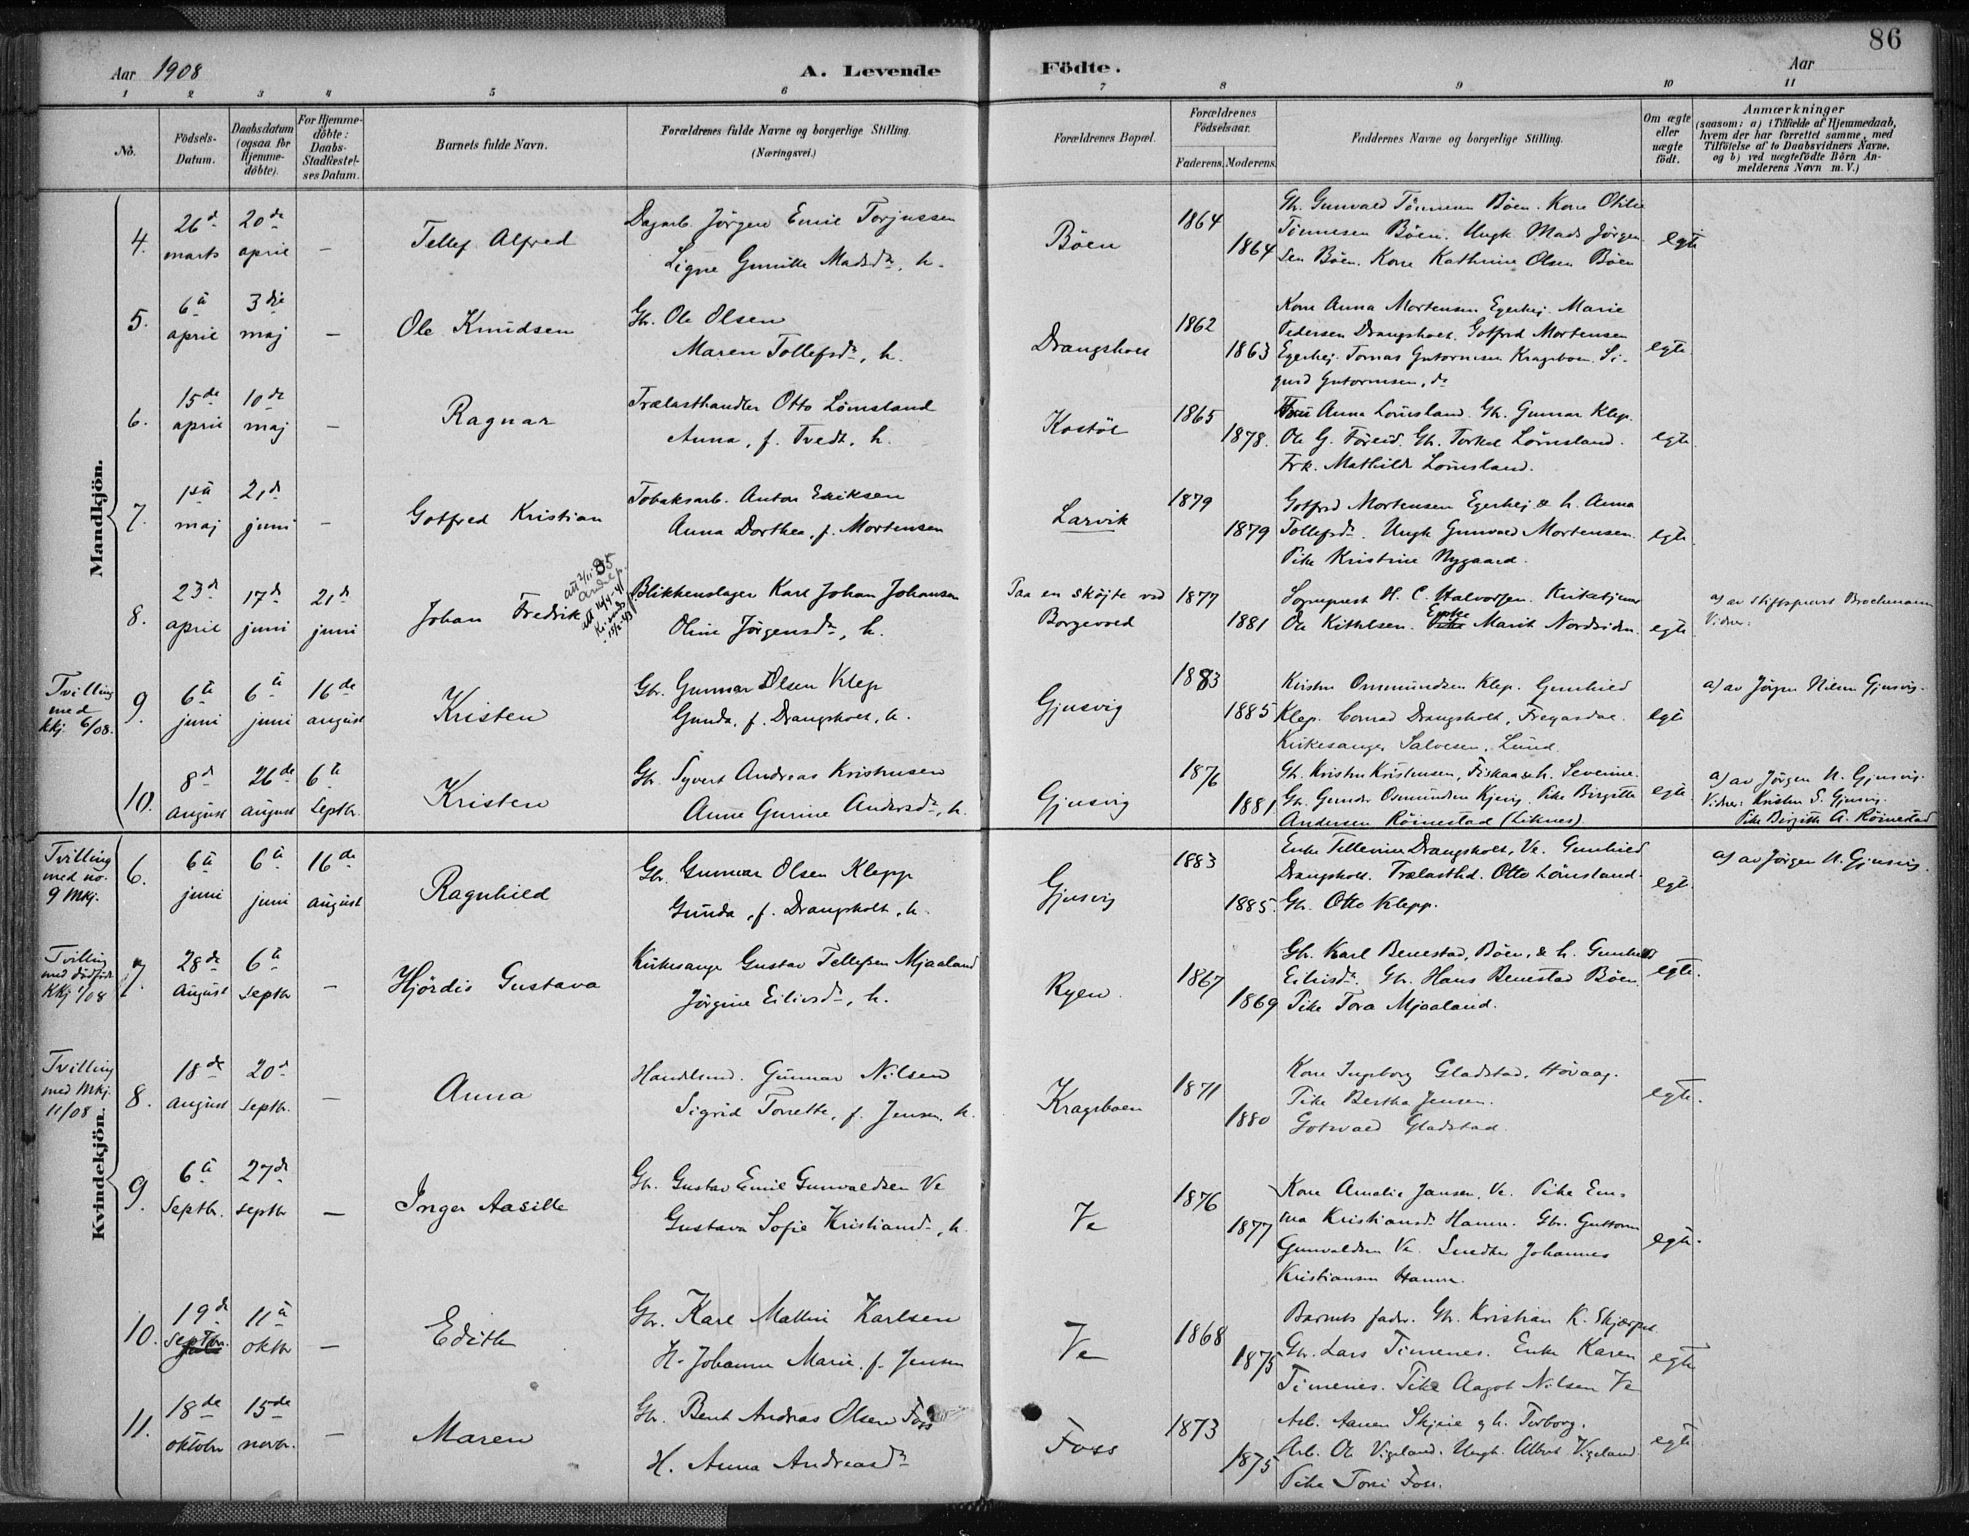 86
Aar 1908
A. Levende
Födte.
Aar
1 2 3 4 5 6 7 8 9 10 11
No.
Födsels-Datum.
Daabsdatum (ogsaa for Hjemme-döbte).
For Hjemme-döbte: Daabs-Stadfæstel-ses Datum.
Barnets fulde Navn.
Forældrenes fulde Navne og borgerlige Stilling. (Næringsvei.)
Forældrenes Bopæl.
Forældrenes Födselsaar.
Faderens. Moderens.
Faddernes Navne og borgerlige Stilling.
Om ægte eller uægte födt.
Anmærkninger
(saasom: a) i Tilfælde af Hjemmedaab,
hvem der har forrettet samme, med
Tilföielse af to Daabsvidners Navne,
og b) ved uægtefödte Börn An-
melderens Navn m. V.)
Mandkjön.
4. 26de marts 20de april – Tellef Alfred
Dagarb. Jörgen Emil Torjussen
Signe Gunille Madsdr, h.
Böen 1864 1864
Gb. Gunvald Tönnesen Böen. Kone
Tönnesen Böen. Ungk. Mads Jörgen-
sen Böen. Kone Kathrine Olsen Böen
egte
5. 6te april 3die maj – Ole Knudsen
Gb. Ole Olsen
Maren Tollefsdr, h.
Drangsholt 1862 1863
Kone Anna Mortensen Egerhej. Marie
Pedersen Drangsholt. Gotfred Mortensen
Egerhej. Tomas Gutormsen Krageboen. Si-
gurd Gutormsen, ds
egte
6. 15de april 10de maj – Ragnar
Trælasthandler Otto Lömsland
Anna, f. Tvedt, h.
Kostöl 1865 1878.
Anna Lömsland. Gb. Gunnar Klep.
Ole G. Föreid. Gb. Torkel Lömsland.
Frk. Mathilde Lömsland.
egte
7. 1ste maj 21de juni – Gotfred Kristian
Tobaksarb. Anton Eriksen
Anna Dorthea, f. Mortensen
Larvik 1879 1879
Gotfred Mortensen Egerhej & h. Anna
Tollefsdr. Ungk. Gunvald Mortensen.
Pike Kristine Nygaard.
egte
8. 23de april 17de juni 21de juni Johan Fredrik
Blikkenslager Karl Johan Johansen
Oline Jörgensdr, h.
Paa en sköjte ved Borgevold 1877 1881
Sogneprest H. C. Halvorsen. Kirketjener
Ole Kittelsen. Enke Marit Nordsiden.
egte
a) av stiftsprost Brochmann
Vidner:
Tvilling med Kkj. 6/08.
9. 6te juni 6te juni 16de august Kristen
Gbr. Gunnar Olsen Klep
Gunda, f. Drangsholt, h.
Gjusvig 1883 1885
Kirsten Osmundsen Klep. Gunhild
Klep. Conrad Drangsholt, Tregardal.
Kirkesanger Salvesen, Lund.
egte
a) av Jörgen Nilsen Gjusvig.
10. 8de august 26de august 6te septbr. Kristen
Gb. Syvert Andreas Kristensen
Anne Gurine Andersdr, h.
Gjusvig 1876 1881
Gb. Kristen Kristensen, Fiskaa & h. Severine.
Gb. Gunder Osmundsen Kjevig. Pike Birgitte
Andersen Röinestad (Liknes).
egte
a) av Jörgen N. Gjusvig.
Vidner: Kristen S. Gjusvig.
Pike Birgitte A. Röinestad
Kvindekjön.
Tvilling med no. 9 Mkj.
6. 6te juni 6te juni 16de august Ragnhild
Gb. Gunnar Olsen Klepp
Gunda, f. Drangsholt, h.
Gjusvig 1883 1885.
Enke Tellevine Drangsholt, Ve. Gunhild
Drangsholt. Trælasthd. Otto Lömsland.
Gb. Otto Klepp.
egte.
a) av Jörgen N. Gjusvig.
Tvilling med dödfödt Kkj 1/08
7. 28de august 6te septbr – Hjördis Gustava
Kirkesanger Gustav Tellefsen Mjaaland
Jörgine Eilivsdr, h.
Ryen. 1867 1869
Gb. Karl Benestad, Böen, & h. Gunhild
Eilivsdr. Gbr. Hans Benestad Böen.
Pike Tora Mjaaland.
egte.
Tvilling med Mkj. 11/08
8. 18de august 20de septbr. – Anna
Handelsmd. Gunnar Nilsen
Sigrid Torrette, f. Jensen, h.
Krageboen 1871 1880
Kone Ingeborg Gladstad, Hövaag.
Pike Bertha Jensen.
Gotvald Gladstad.
egte.
9. 6te septbr. 27de septbr – Inger Aasille
Gb. Gustav Emil Gunvaldsen Ve
Gustava Sofie Kristiansdr, h.
Ve 1876 1877
Kone Amalie Jansen, Ve. Pike Em-
ma Kristiansdr Hamre. Gbr. Guttorm
Gunvaldsen Ve. Snedker Johannes
Kristiansen Hamre.
egte.
10. 19de septbr. 11te oktbr – Edith
Gbr. Karl Mathin Karlsen
H. Johanne Marie, f. Jensen
Ve 1868 1875
Barnets fader. Gb. Kristian K. Skjærpe
Gbr. Lars Timenes. Enke Karen
Timenes. Pike Aagot Nilsen Ve
egte
11. 18de oktobr 15de novbr. – Maren
Gb. Bent Andreas Olsen Foss
H. Anna Andreasdr
Foss 1873 1875
Arb. Aanen Skjeie & h. Torborg.
Arb. Ole Vigeland. Ungk. Albert Vigeland
Pike Toni Foss.
egte